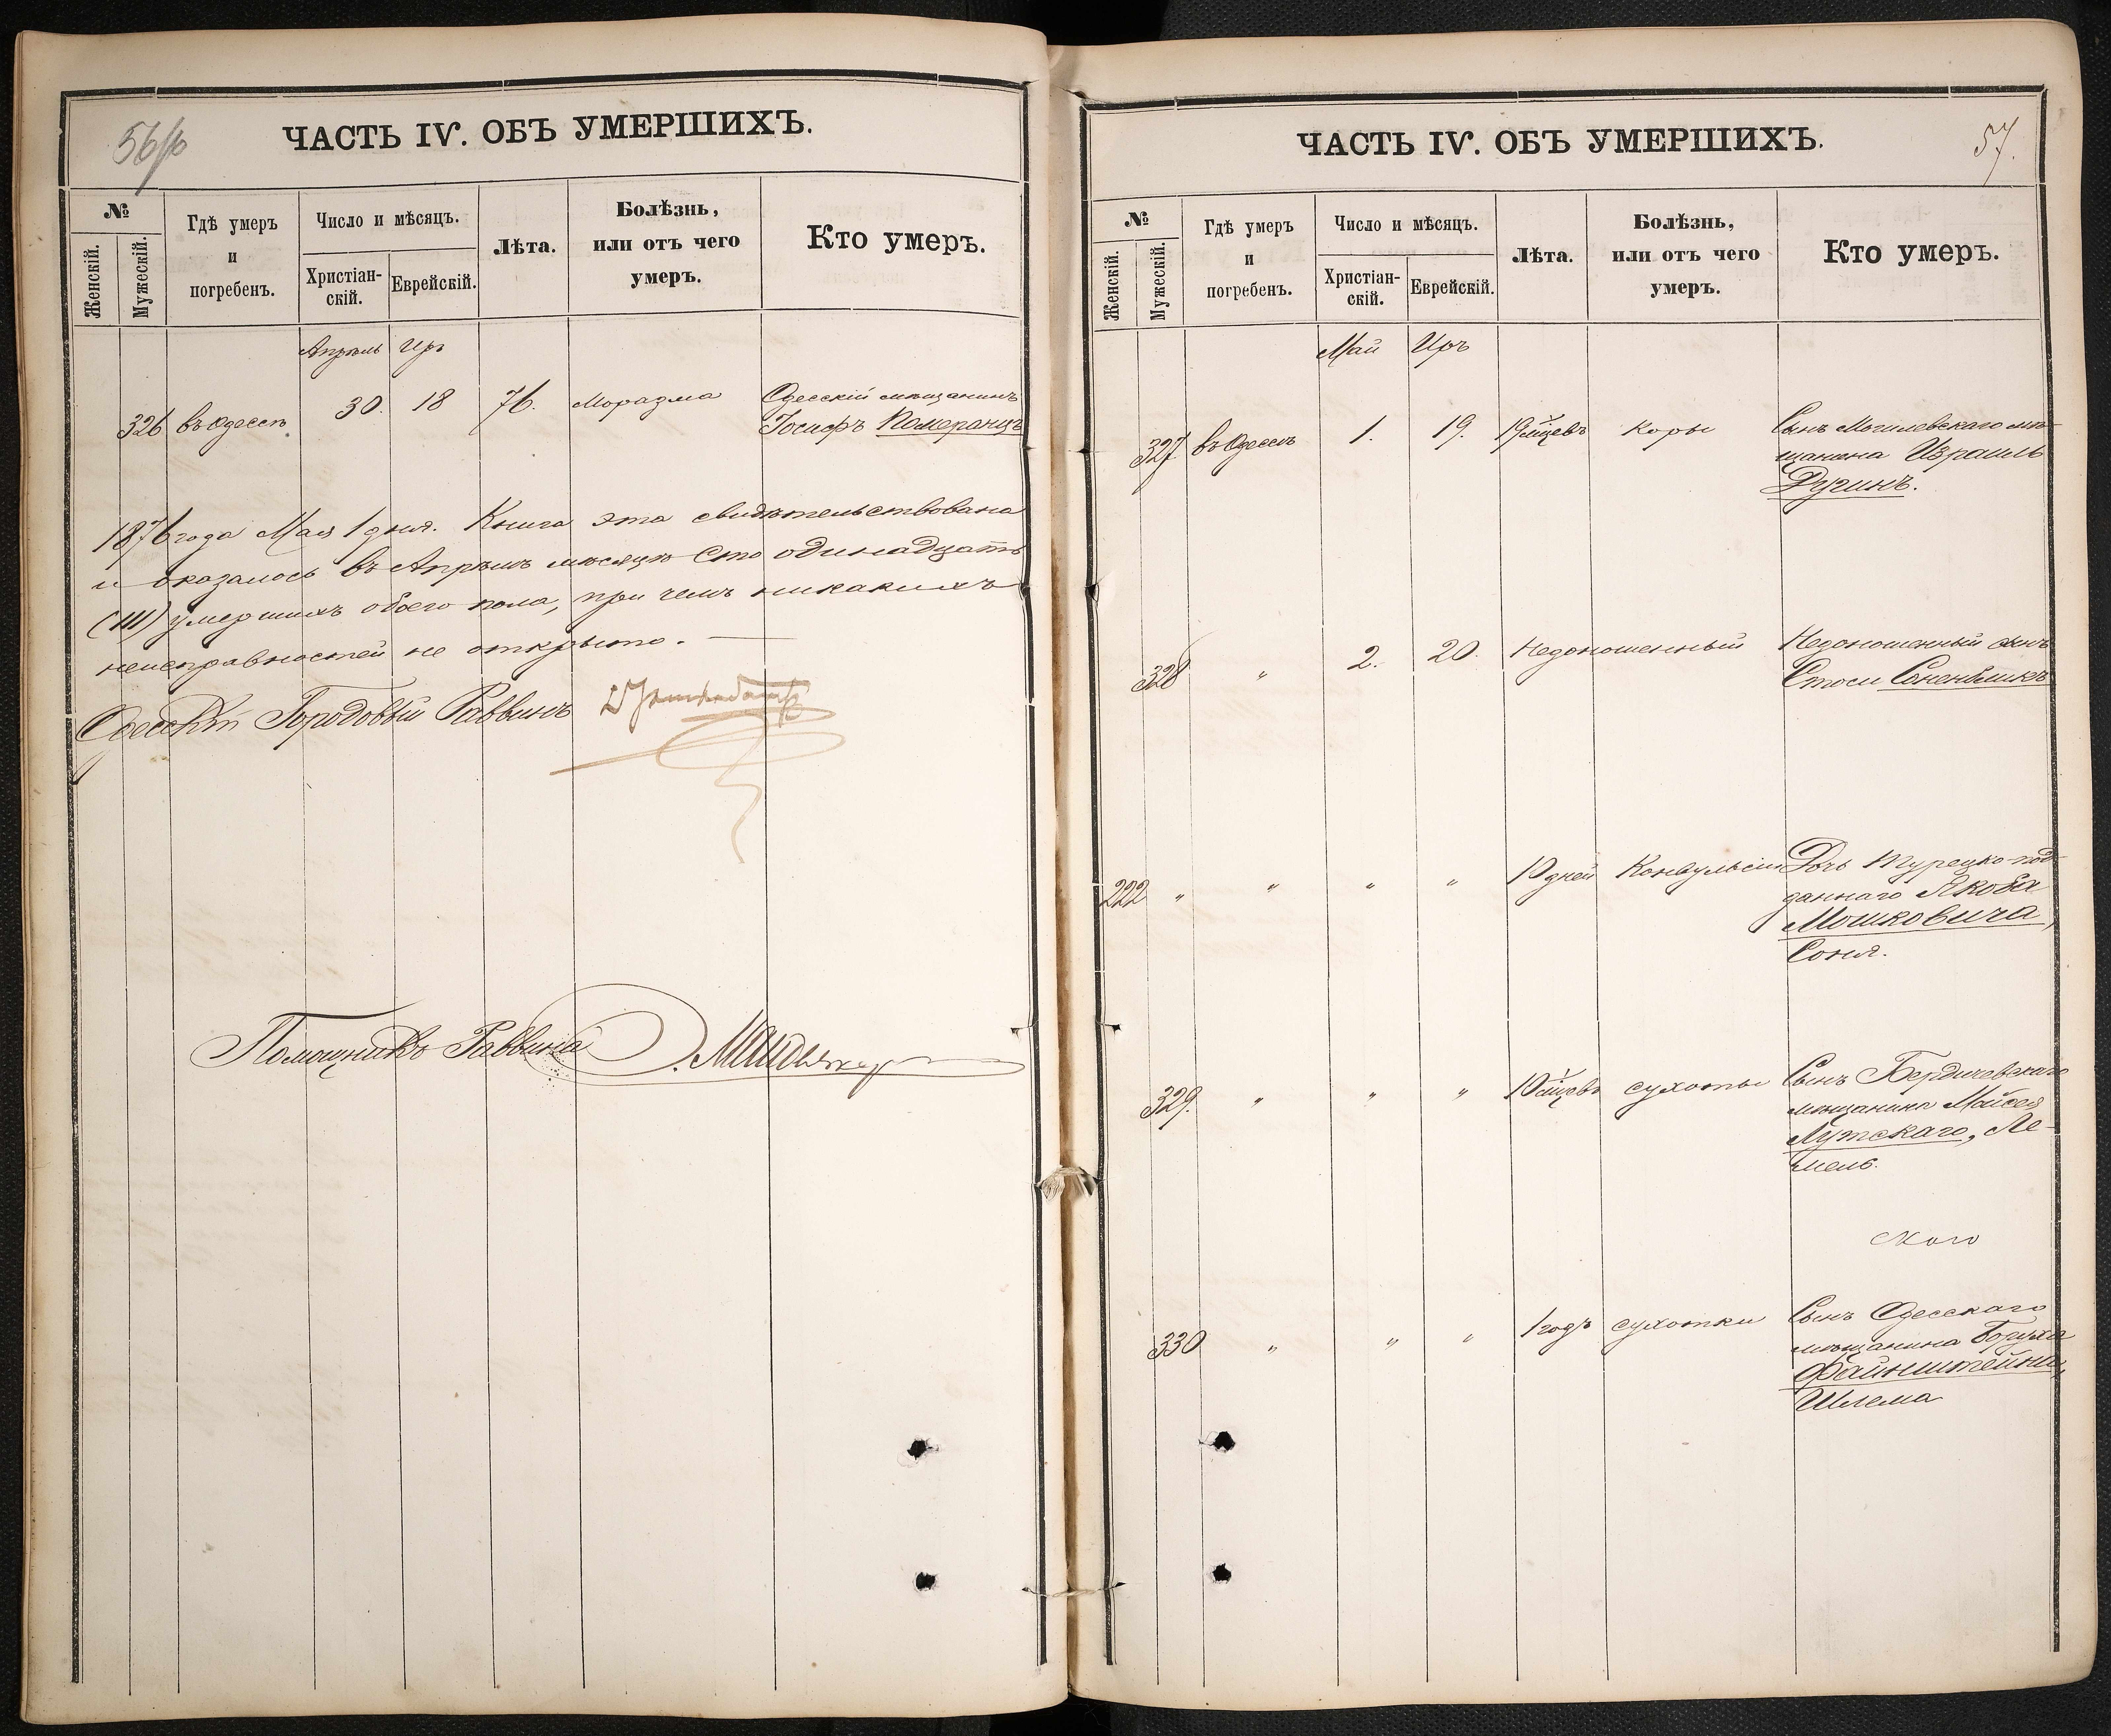 56/б
ЧАСТЬ IV. ОБЪ УМЕРШИХЪ.
№
Женскій.
Мужескій.
Гдѣ умеръ
и
погребенъ.
Число и мѣсяцъ.
Христіан-
скій.
Еврейскій.
Лѣта.
Болѣзнь,
или отъ чего
умеръ.
Кто умеръ.
Апрѣль Иръ
326 въ Одессѣ 30. 18 76. Моразма Одесскій мѣщанинъ
Іосифъ Померанцъ
1876 года Мая 1 дня. Книга эта свидѣтельствована
и оказалось въ Апрѣлѣ мѣсяцѣ Сто одинадцать
(111) умершихъ обоего пола, при чемъ никакихъ
неисправностей не открыто.
Одесскій Городовый Раввинъ
Помощникъ Раввина
57.
ЧАСТЬ IV. ОБЪ УМЕРШИХЪ.
№
Женскій.
Мужескій.
Гдѣ умеръ
и
погребенъ.
Число и мѣсяцъ.
Христіан-
скій.
Еврейскій.
Лѣта.
Болѣзнь,
или отъ чего
умеръ.
Кто умеръ.
Май Иръ
327 въ Одессѣ 1. 19. 19 мцевъ Коры Сынъ Могилевскаго мѣ-
щанина Израиль
Ручинъ.
328 " 2. 20. Недоношенный Недоношенный сынъ
Стоси Соненбликъ
222 " " " " 10 дней Конвульсіи Дочь Турецко-под-
даннаго Якоба
Мошковича,
Соня.
329. " " " 10 мцевъ сухоты Сынъ Бердичевскаго
мѣщанина Мойсея
Лутскаго, Ле-
мель.
ского
330 " " " 1 годъ сухотки Сынъ Одесскаго
мѣщанина Боруха
Файнштейна,
Шлема